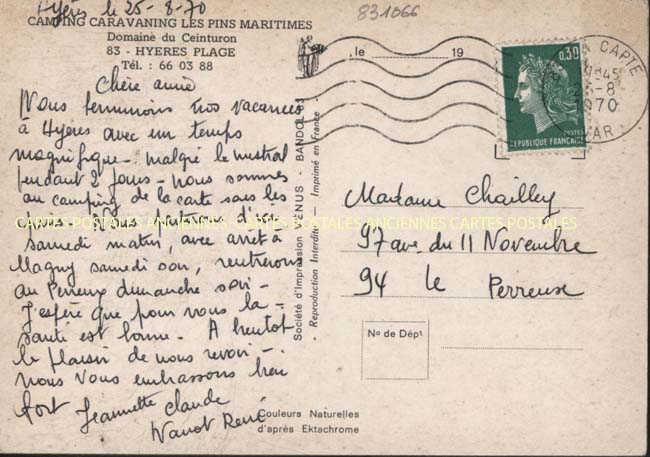 Hyères le 25-8-70
831066
CAMPING CARAVANING LES PINS MARITIMES
Domaine du Ceinturon
83 - HYERES PLAGE
Tél. : 66 03 88
Chère amie
Nous terminons nos vacances
à Hyères avec un temps
magnifique - malgré le mistral
pendant 2 jours - nous sommes
au camping de la carte sous les
pins - nous partons d'ici
samedi matin, avec arrêt à
Magny samedi soir, rentrerons
au Perreux dimanche soir -
J'espère que pour vous la
santé est bonne - A bientôt
le plaisir de nous revoir -
nous vous embrassons bien
fort Jeannette Claude
René
, le 19
0,30
POSTES
REPUBLIQUE FRANÇAISE
CAPTE
1845
25-8
1970
VAR
Madame Chailley
97 ave. du 11 Novembre
94 le Perreux
No de Dépt
Société d'Impression VENUS - BANDOL-83
- Reproduction Interdite - Imprimé en France -
Couleurs Naturelles
d'après Ektachrome
CARTES POSTALES ANCIENNES CARTES POSTALES ANCIENNES CARTES POSTALES